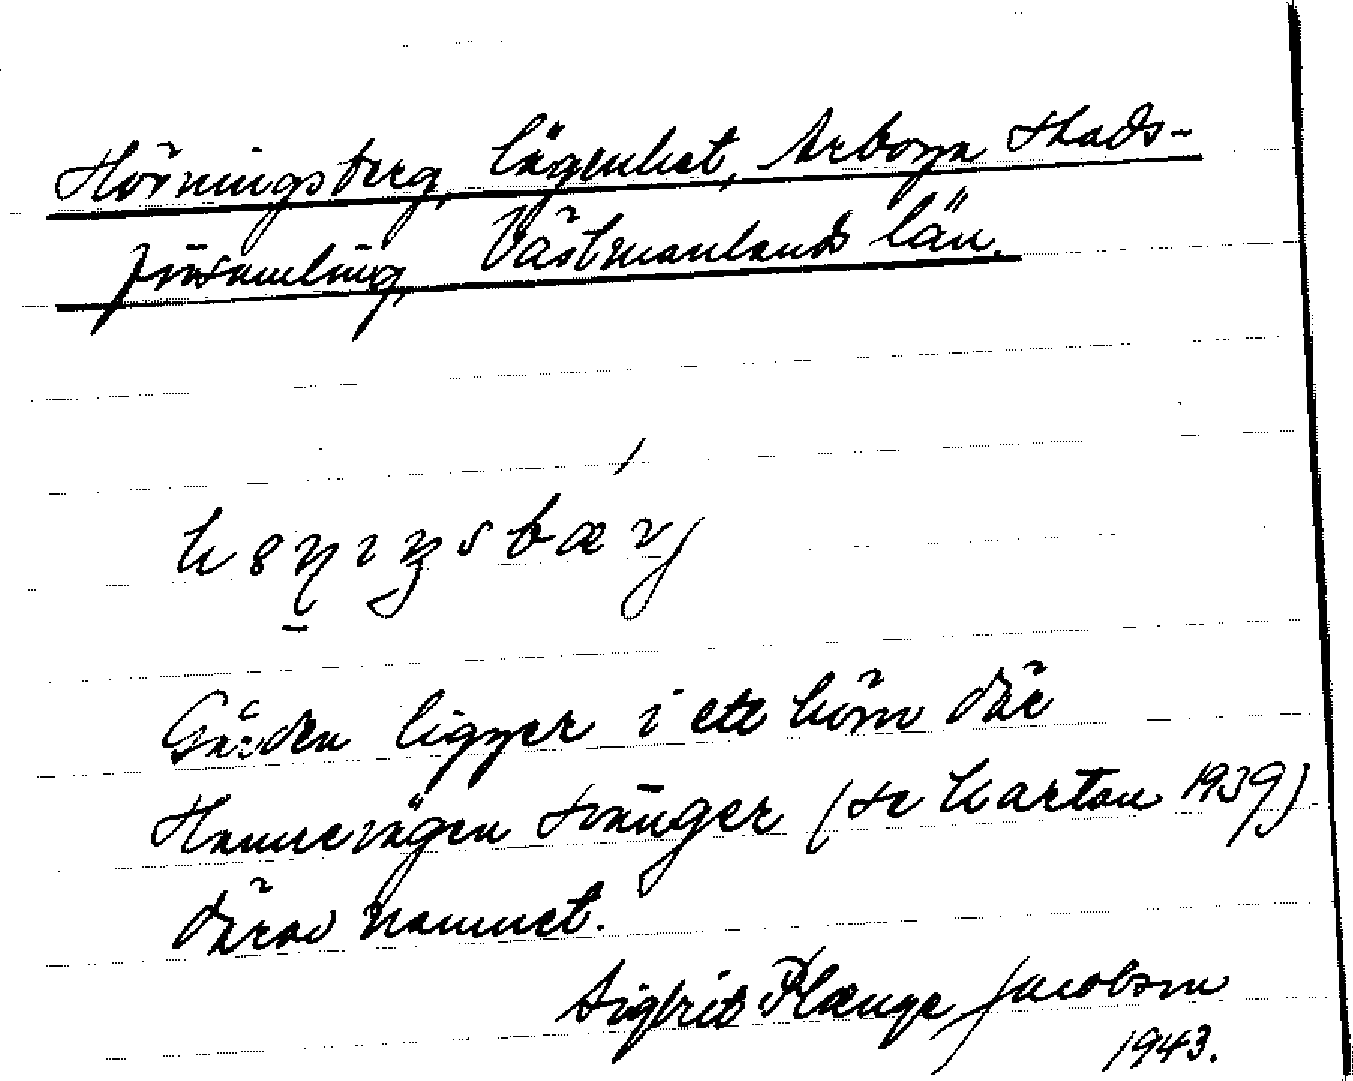 Hörningsberg, lägenhet, Arboga stads-
församling, Västmanlands län.
Gården ligger i ett hörn där
Hamrevägen svänger (se kartan 1939)
därav namnet.
Sigfrid Plænge Jacobson
1943.